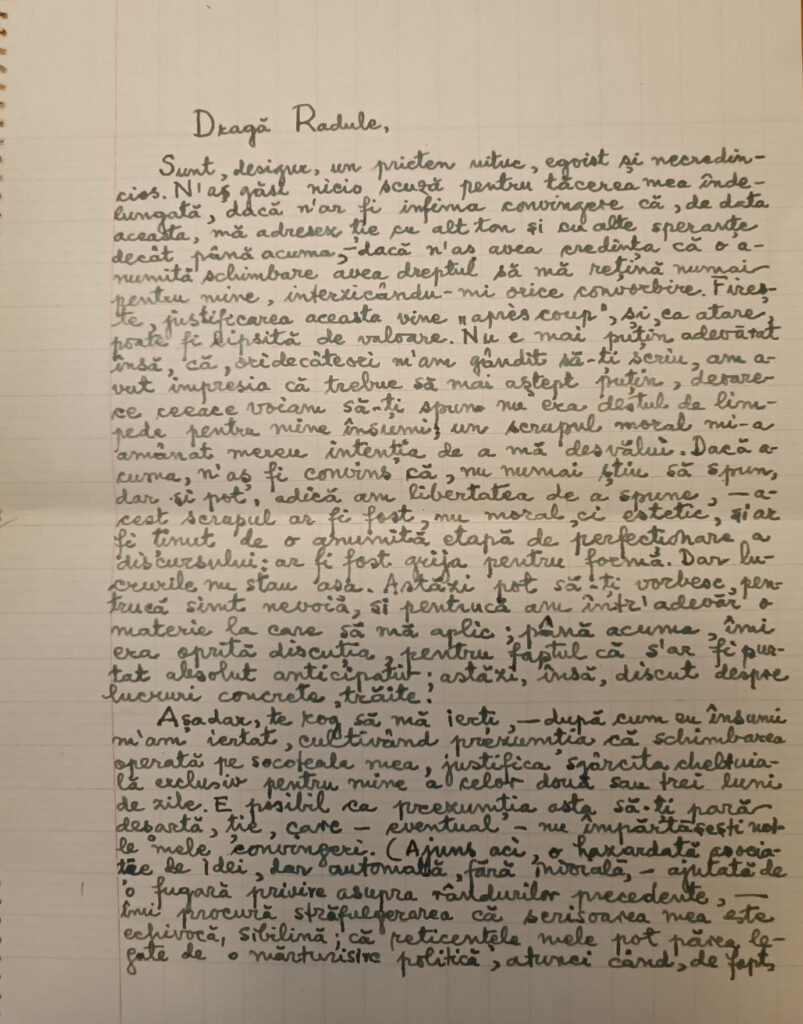 Dragă Radule,
Sunt, desigur, un prieten uituc, egoist și necredin-
cios. N'aș găsi nicio scuză pentru tăcerea mea înde-
lungată, dacă n'ar fi infima convingere că, de data
aceasta, mă adresez ție cu alt ton și cu alte speranțe
decât până acuma, – dacă n'aș avea credința că o a-
numită schimbare avea dreptul să mă rețină numai
pentru mine, interzicându-mi orice convorbire. Fireș-
te, justificarea aceasta vine „après coup", și, ca atare,
poate fi lipsită de valoare. Nu e mai puțin adevărat
însă, că, oridecâteori m'am gândit să-ți scriu, am a-
vut impresia că trebue să mai aștept puțin, deoare-
ce ceeace voiam să-ți spun nu era destul de lim-
pede pentru mine însumi; un scrupul moral mi-a
amânat mereu intenția de a mă desvălui. Dacă a-
cuma, n'aș fi convins că, nu numai știu să spun,
dar și pot, adică am libertatea de a spune, – a-
cest scrupul ar fi fost, nu moral, ci estetic, și ar
fi ținut de o anumită etapă de perfecționare a
discursului: ar fi fost grija pentru formă. Dar lu-
crurile nu stau așa. Astăzi pot să-ți vorbesc, pen-
trucă simt nevoia, și pentrucă am într'adevăr o
materie la care să mă aplic; până acuma, îmi
era oprită discuția, pentru faptul că s'ar fi pur-
tat absolut anticipativ: astăzi, însă, discut despre
lucruri concrete, trăite.
Așadar, te rog să mă ierți, – după cum eu însumi
m'am iertat, cultivând prezumția că schimbarea
operată pe socoteala mea, justifica sgârcita cheltuia-
lă exclusiv pentru mine a celor două sau trei luni
de zile. E posibil ca prezumția asta să-ți pară
deșartă, ție, care – eventual – nu împărtășești
le mele convingeri. (Ajuns aci, o hazardată asocia-
ție de idei, dar automată, fără învoială, – ajutată de
o fugară privire asupra rândurilor precedente, –
îmi procură străfulgerarea că scrisoarea mea este
echivocă, sibilină; că reticențele mele pot părea le-
gate de o mărturisire politică, atunci când, de fapt,